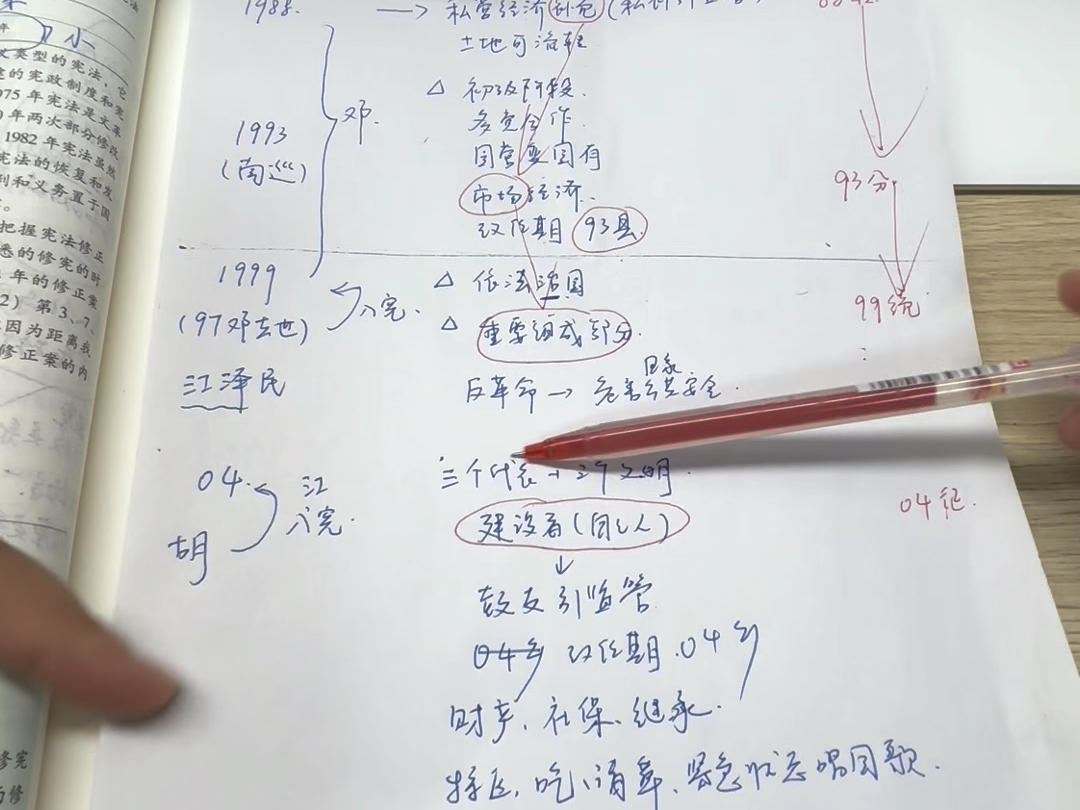 1988. → 私营经济
土地可流转
△ 初级阶段.
多党合作.
1993
(南巡)
邓.
国营变国有
93分
市场经济.
改任期 93县.
1999
(97邓去世)
入宪.
△ 依法治国
△ 重要组成部分.
99统
江泽民
反革命 → 危害公共安全.
国家
三个代表 + 三个文明.
04.
江
入宪.
胡
建设者(自己人)
04纪.
↓
鼓支引监管
04乡 改任期.04乡
财产、社保、继承.
特区, 吃、请章、紧急状态唱国歌.
文类型的宪法，它
的宪政制度和宪
975 年宪法是文革
9 年两次部分修改
1982 年宪法虽然
宪法的恢复和发
利和义务置于国
。
把握宪法修正
悉的修宪的时
年的修正案
2）第 3、7、
因为距离我
修正案的内
修宪
的修